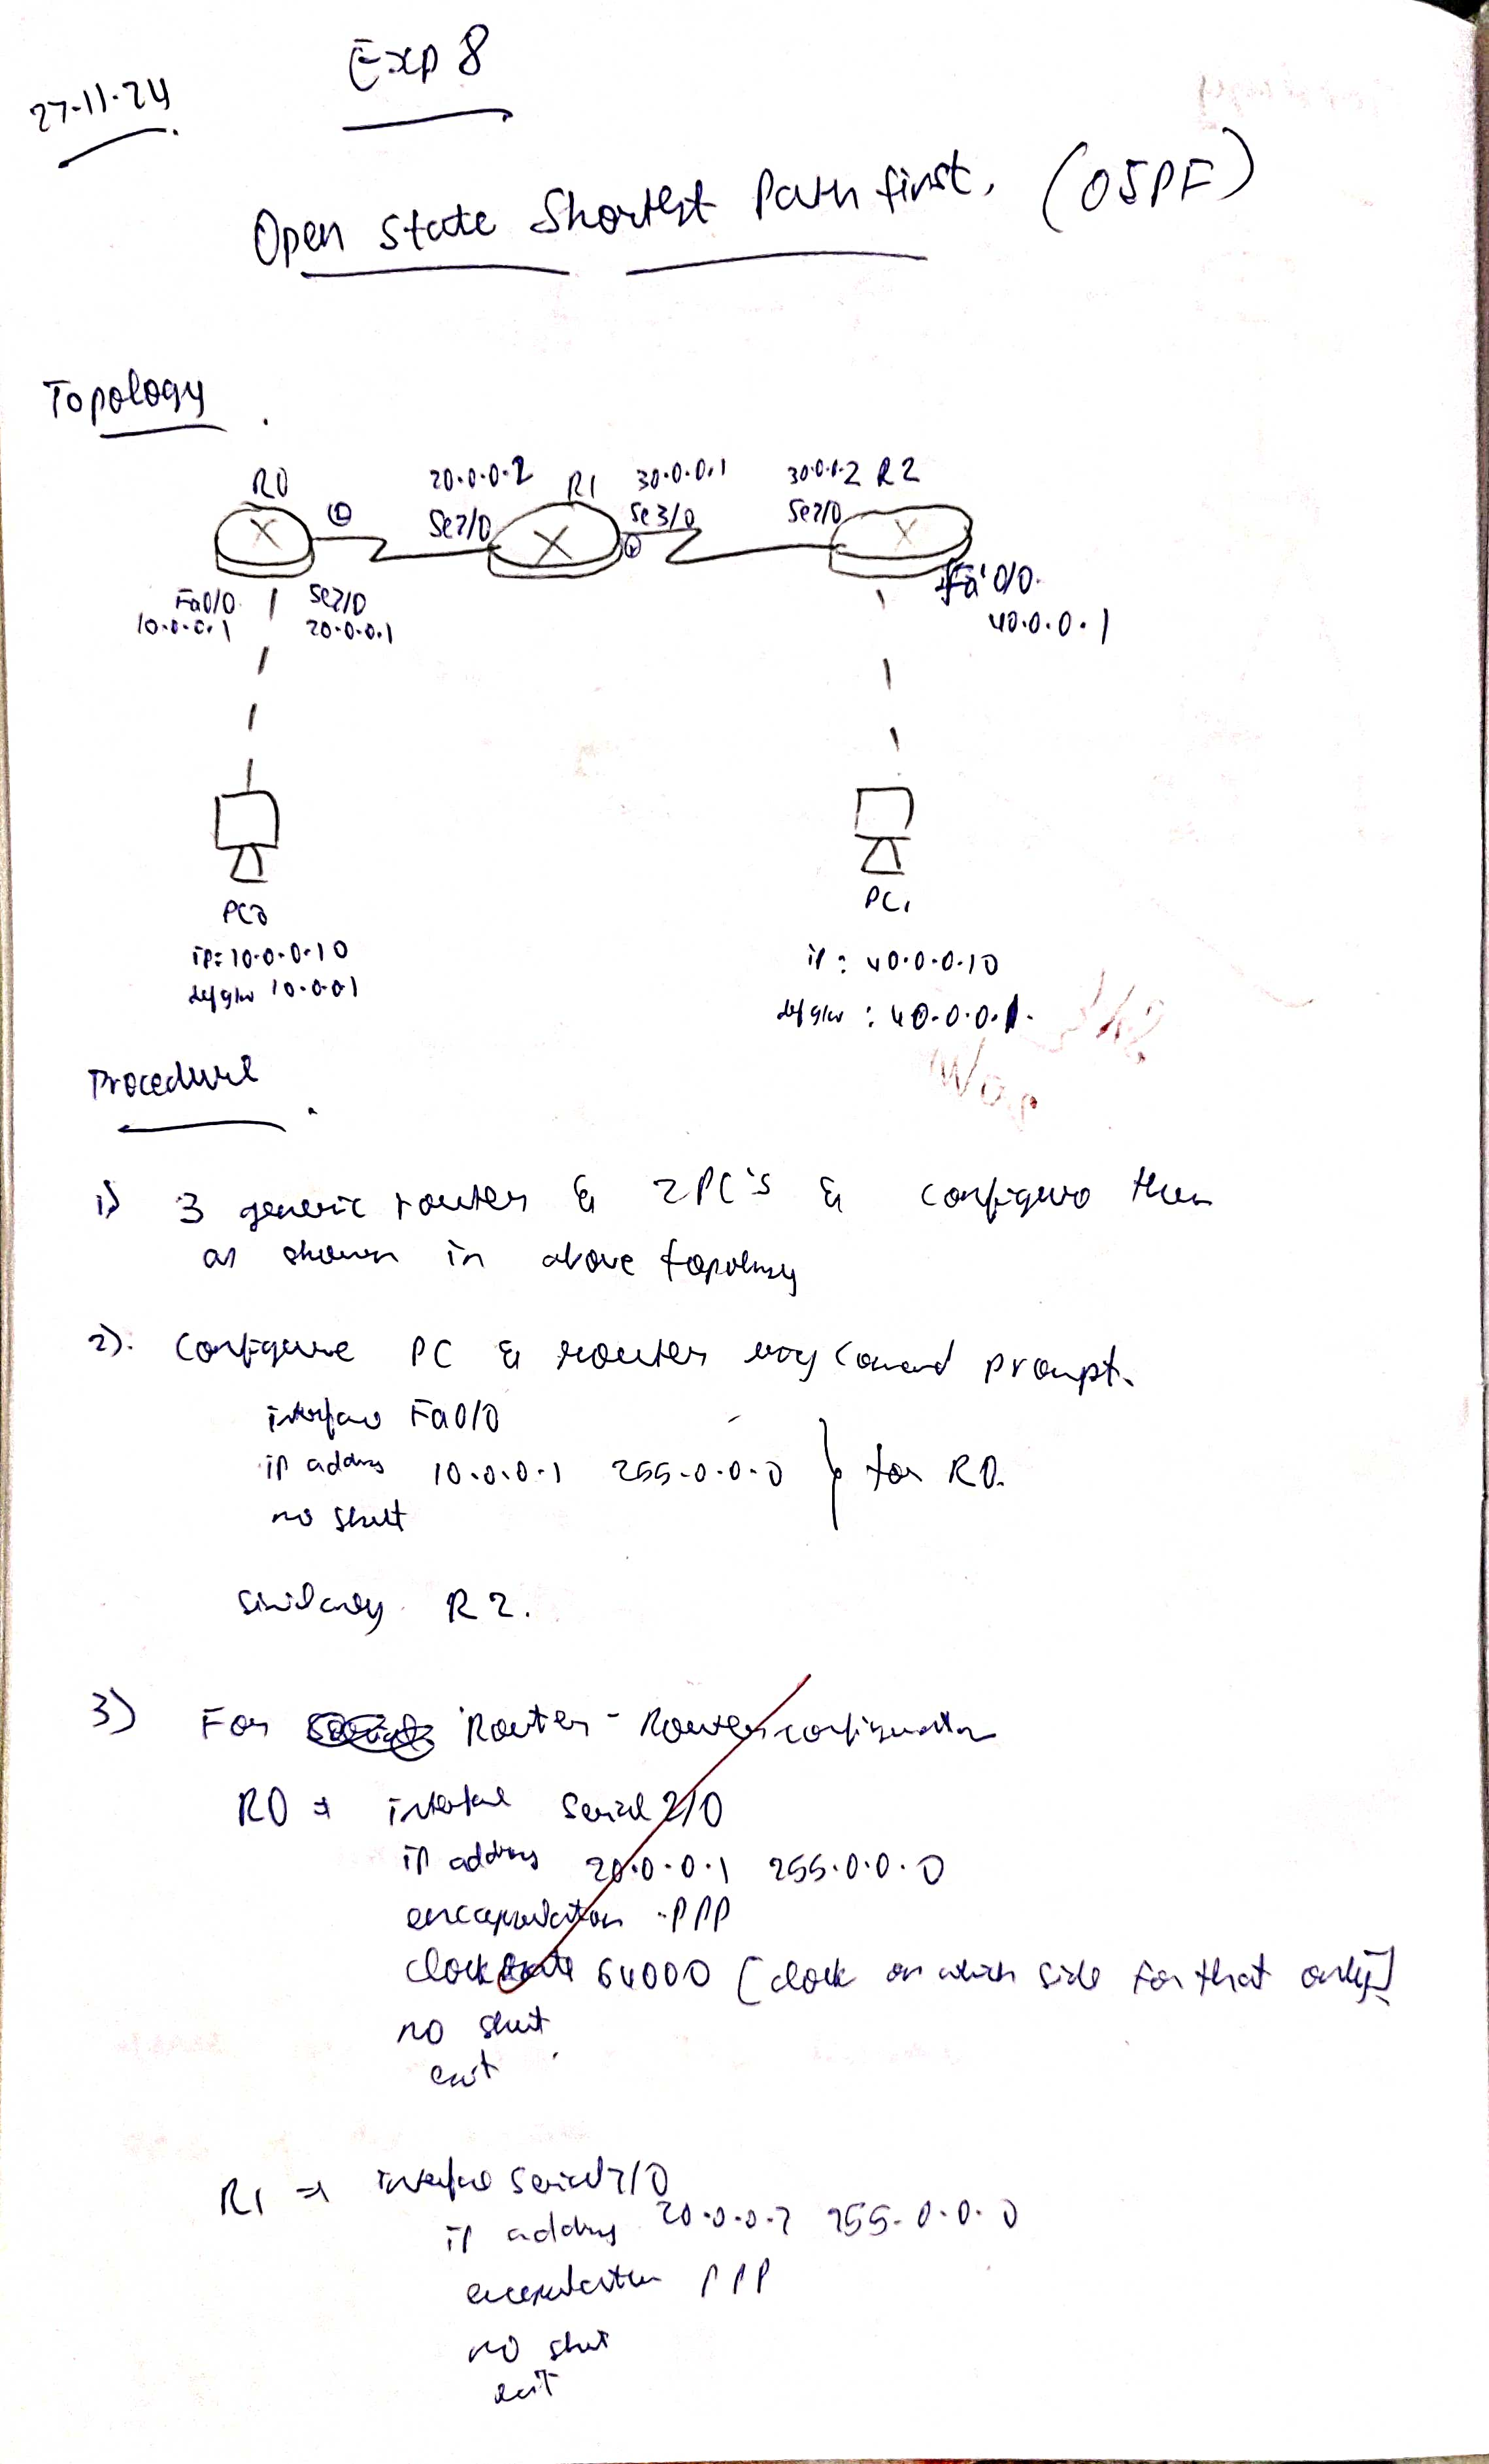 27-11-24
Exp 8
Open State Shortest Path first. (OSPF)
Topology
R0
20.0.0.2
R1
30.0.0.1
30.0.0.2 R2
Se2/0
Se3/0
Se2/0
Fa0/0
10.0.0.1
Se2/0
20.0.0.1
Fa0/0
40.0.0.1
PC0
ip: 10.0.0.10
def g/w 10.0.01
PC1
ip : 40.0.0.10
def g/w : 40.0.0.1
Procedure
1) 3 generic routers & 2PC's & configure them
as shown in above topology
2). Configure PC & routers command prompt.
interface Fa0/0
ip address 10.0.0.1 255.0.0.0 } for R0.
no shut
Similarly R2.
3) For Router - Router configuration
R0 ⇒ interface Serial 2/0
ip address 20.0.0.1 255.0.0.0
encapsulation PPP
clock rate 64000 [clock on which side for that only]
no shut
exit
R1 ⇒ interface Serial 2/0
ip address 20.0.0.2 255.0.0.0
encapsulation PPP
no shut
exit